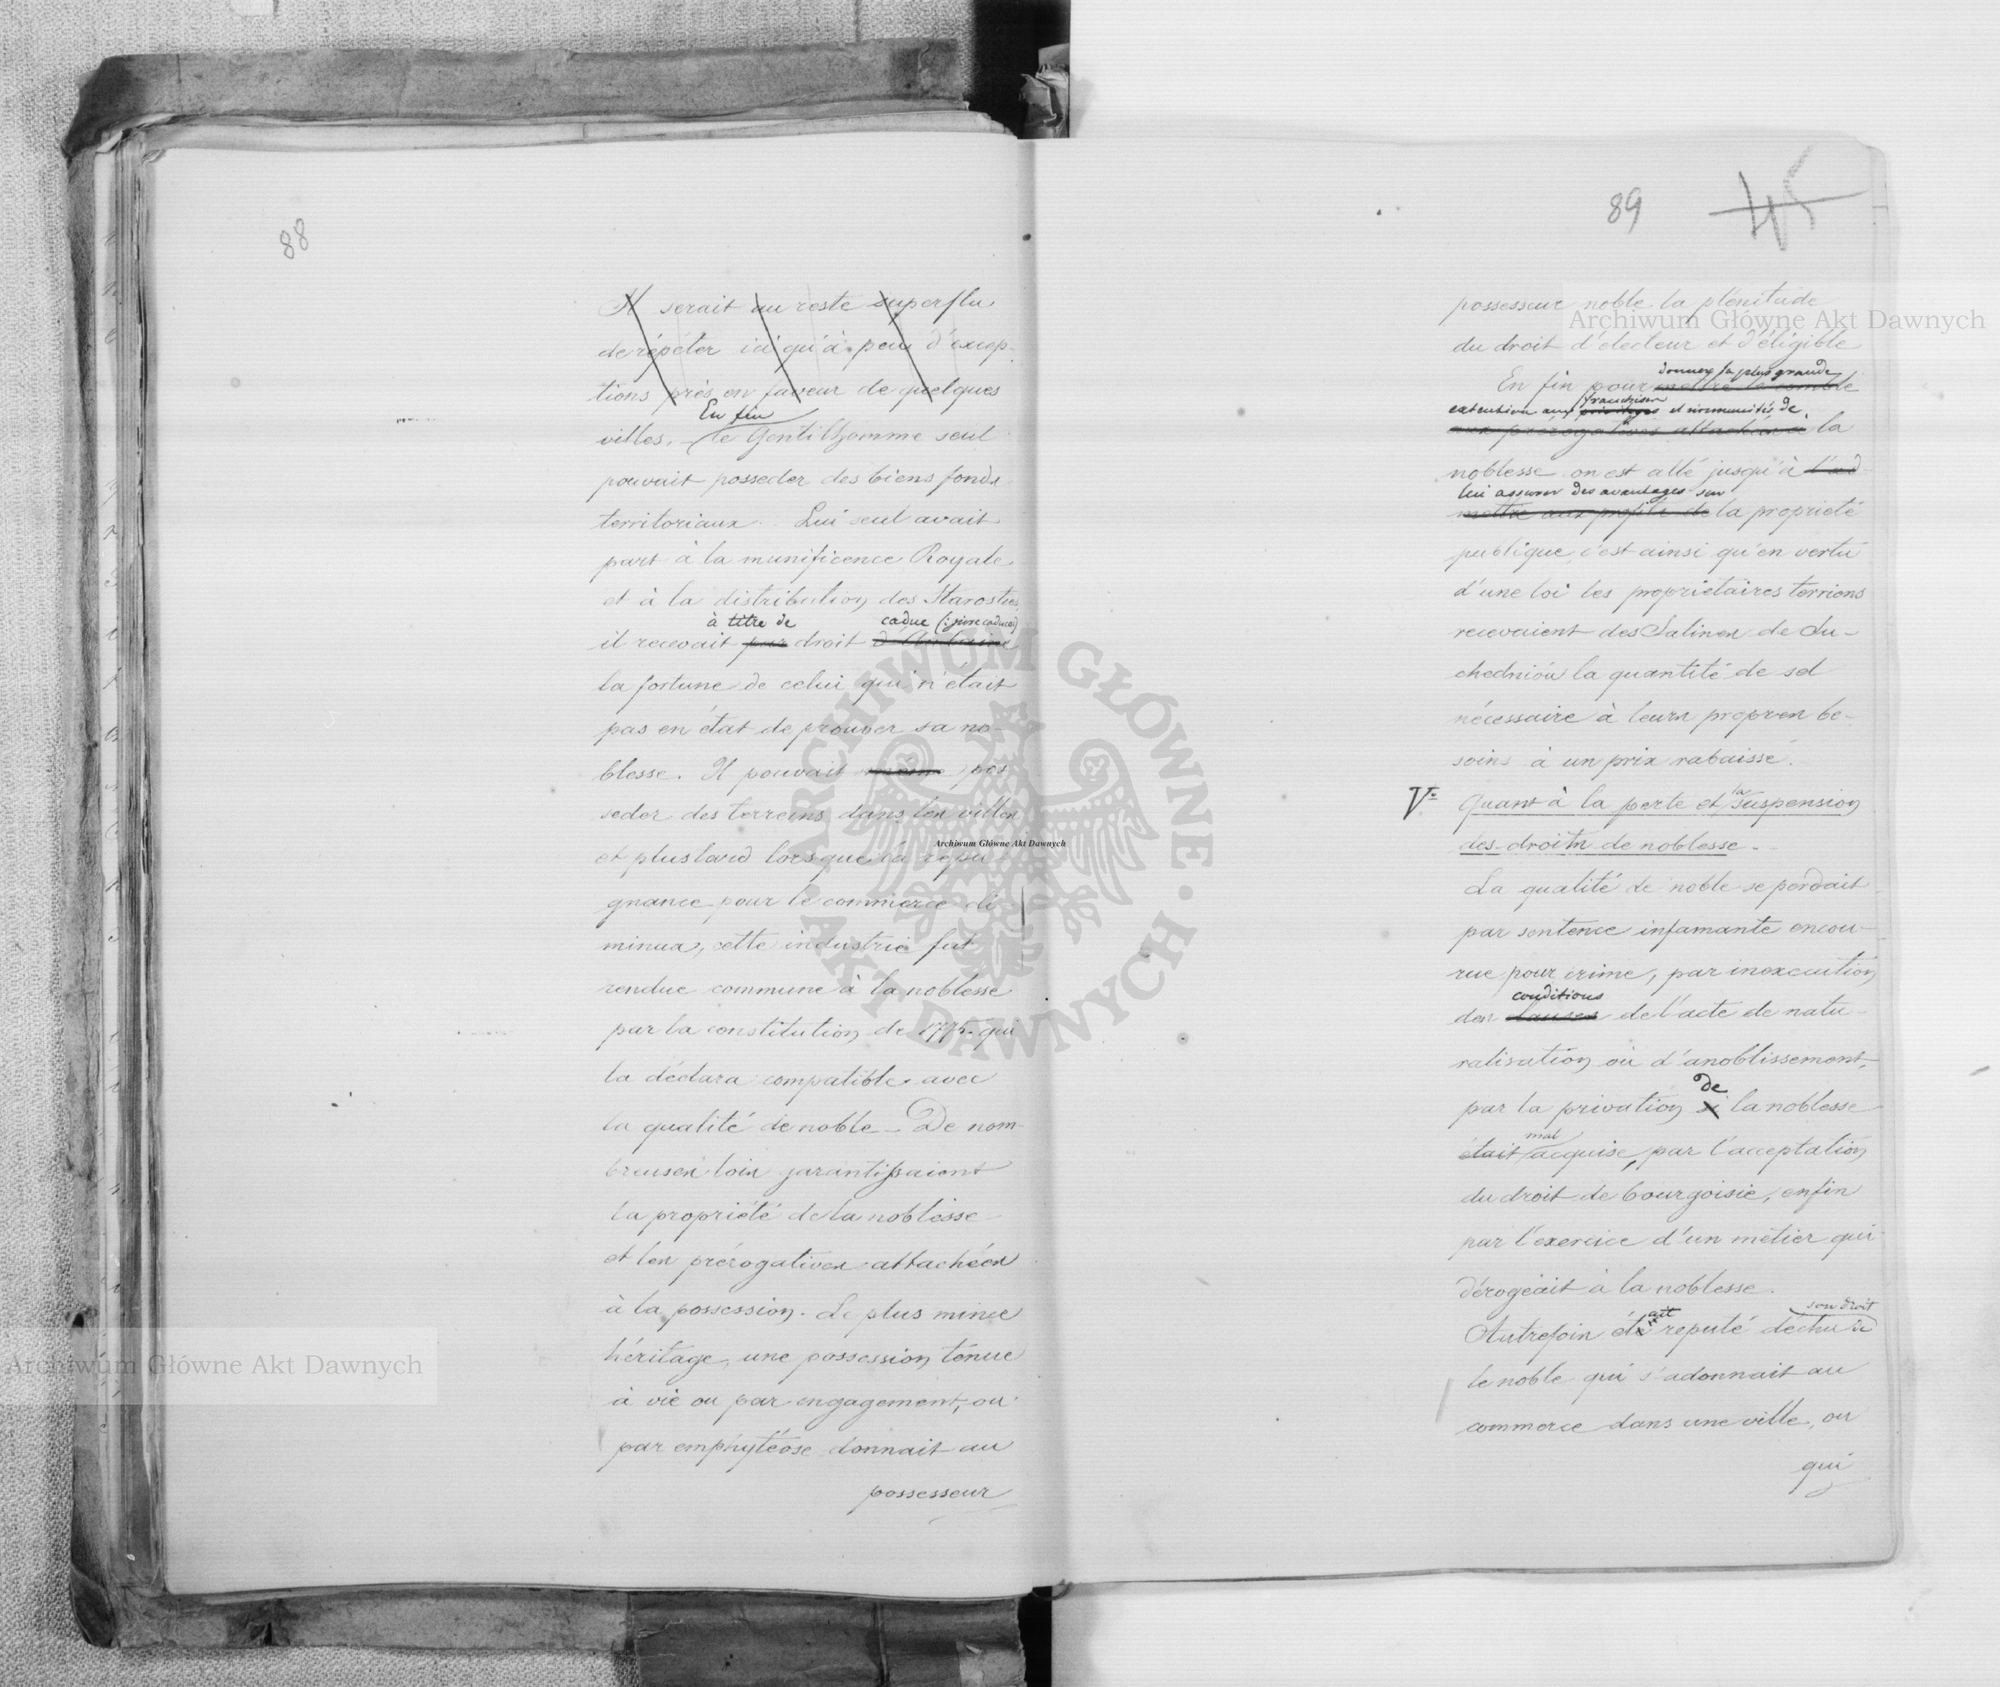 88
Il serait au reste superflu
de répéter ici qu'à peu d'excep-
tions près en faveur de quelques
En fin
villes, le Gentilhomme seul
pouvait posseder des biens fonds
territoriaux. Lui seul avait
part à la munificence Royale
et à la distribution des Starosties
à titre de caduc (: jure caduco)
il recevait par droit
la fortune de celui qui n'était
pas en état de prouver sa no-
blesse. Il pouvait même pos
seder des terreins dans les villes
et plus tard lorsque la répu-
gnance pour le commerce di-
minua, cette industrie fut
rendue commune à la noblesse
par la constitution de 1775 qui
la déclara compatible avec
la qualité de noble – De nom-
breuses lois garantissaient
la propriété de la noblesse
et les prérogatives attachées
à la possession. Le plus mince
héritage, une possession tenue
à vie ou par engagement, ou
par emphytéose donnait au
possesseur
89
45
possesseur noble la plénitude
du droit d'électeur et d'éligible
donner la plus grande
En fin pour mettre le comble
extension aux privilèges franchises et immunités de
aux prérogatives attachées à la
noblesse on est allé jusqu'à l'ad
lui assurer des avantages sur
mettre aux profits de la propriété
publique, c'est ainsi qu'en vertu
d'une loi les propriétaires terriens
recevaient des Salines de Su-
chedniów la quantité de sel
nécessaire à leurs propres be-
soins à un prix rabaissé.
V° Quant à la perte et la suspension
des droits de noblesse.
La qualité de noble se perdait
par sentence infamante encou-
rue pour crime, par inexécution
conditions
des clauses de l'acte de natu-
ralisation ou d'anoblissement,
de
par la privation si la noblesse
mal
était acquise, par l'acceptation
du droit de bourgoisie, enfin
par l'exercice d'un métier qui
dérogeait à la noblesse.
ait son droit
Autrefois été reputé déchu de
le noble qui s'adonnait au
commerce dans une ville, ou
qui
Archiwum Główne Akt Dawnych
Archiwum Główne Akt Dawnych
Archiwum Główne Akt Dawnych
ARCHIWUM GŁÓWNE · AKT DAWNYCH ·